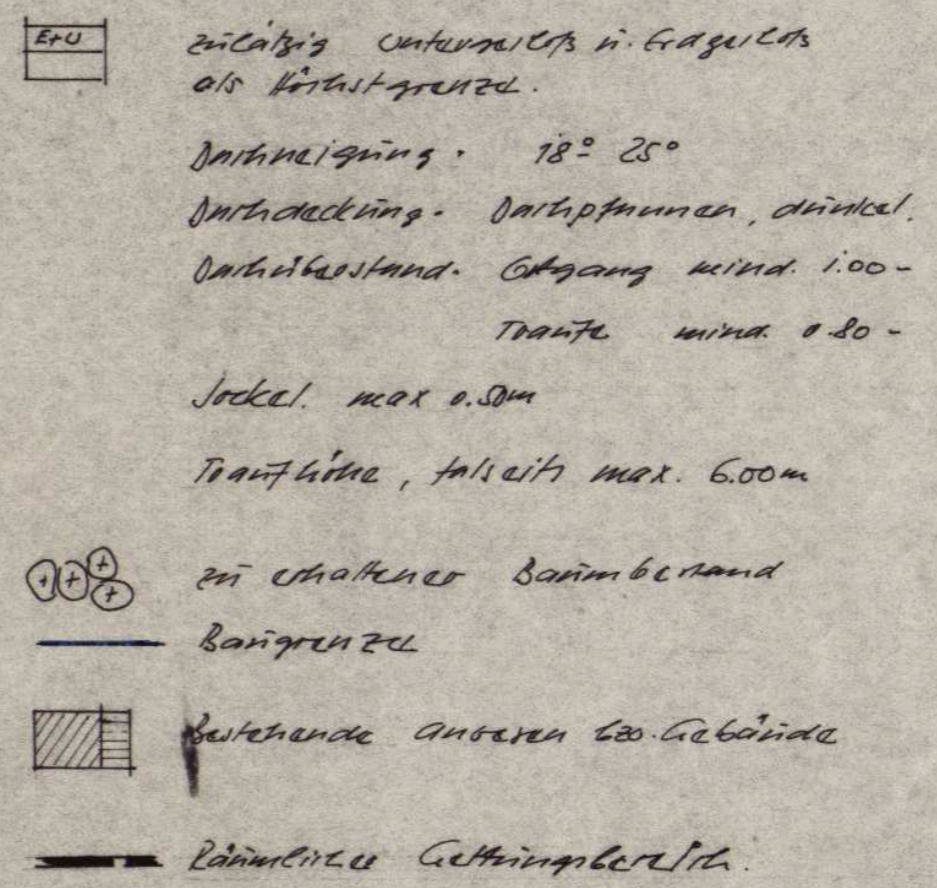 E+U
zulässig Untergeschoß u. Erdgeschoß
als Höchstgrenze.
Dachneigung. 18° 25°
Dachdeckung. Dachpfannen, dunkel.
Dachüberstand. Ortgang mind. 1.00-
Traufe mind. 0.80-
Sockel. max 0.50m
Traufhöhe, talseits max. 6.00m
zu erhaltener Baumbestand
Baugrenze
Bestehende Anwesen bzw. Gebäude
Räumlicher Geltungsbereich.